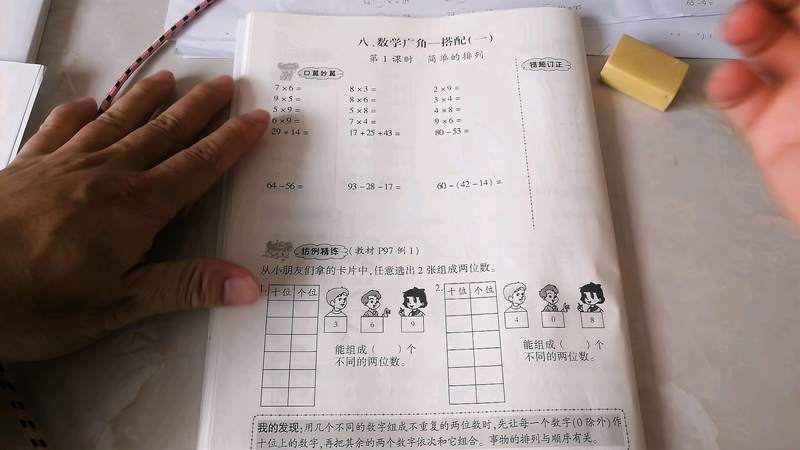 八、数学广角—搭配(一)
第1课时 简单的排列
口算妙算
错题订正
7×6= 8×3= 2×9=
9×5= 8×6= 3×4=
5×9= 5×8= 4×8=
6×9= 7×4= 9×6=
29+14= 17+25+43= 80-53=
64-56= 93-28-17= 60-(42-14)=
仿例精练 (教材P97例1)
从小朋友们拿的卡片中,任意选出2张组成两位数。
1. 十位 个位
3 6 9
能组成( )个
不同的两位数。
2. 十位 个位
4 0 8
能组成( )个
不同的两位数。
我的发现:用几个不同的数字组成不重复的两位数时,先让每一个数字(0除外)作
十位上的数字,再把其余的两个数字依次和它组合。事物的排列与顺序有关。